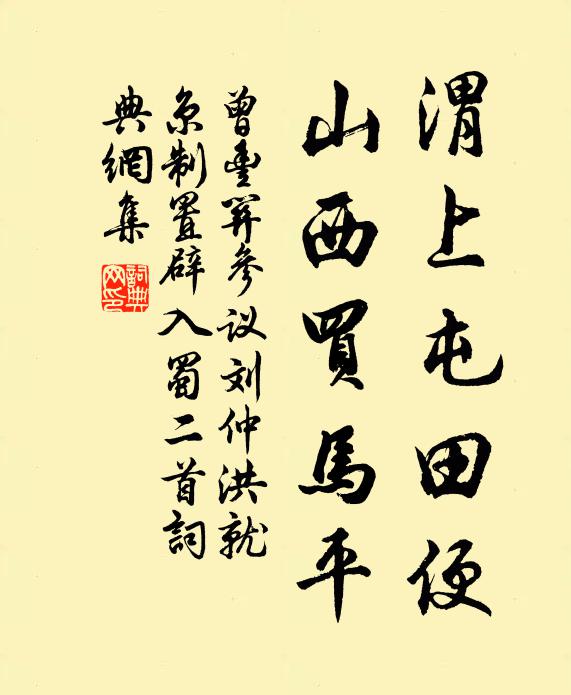 渭上屯田便
山西買馬平
曾豐罪參议刘仲洪就
京制置辟入蜀二首詞
典網集
詞典网印